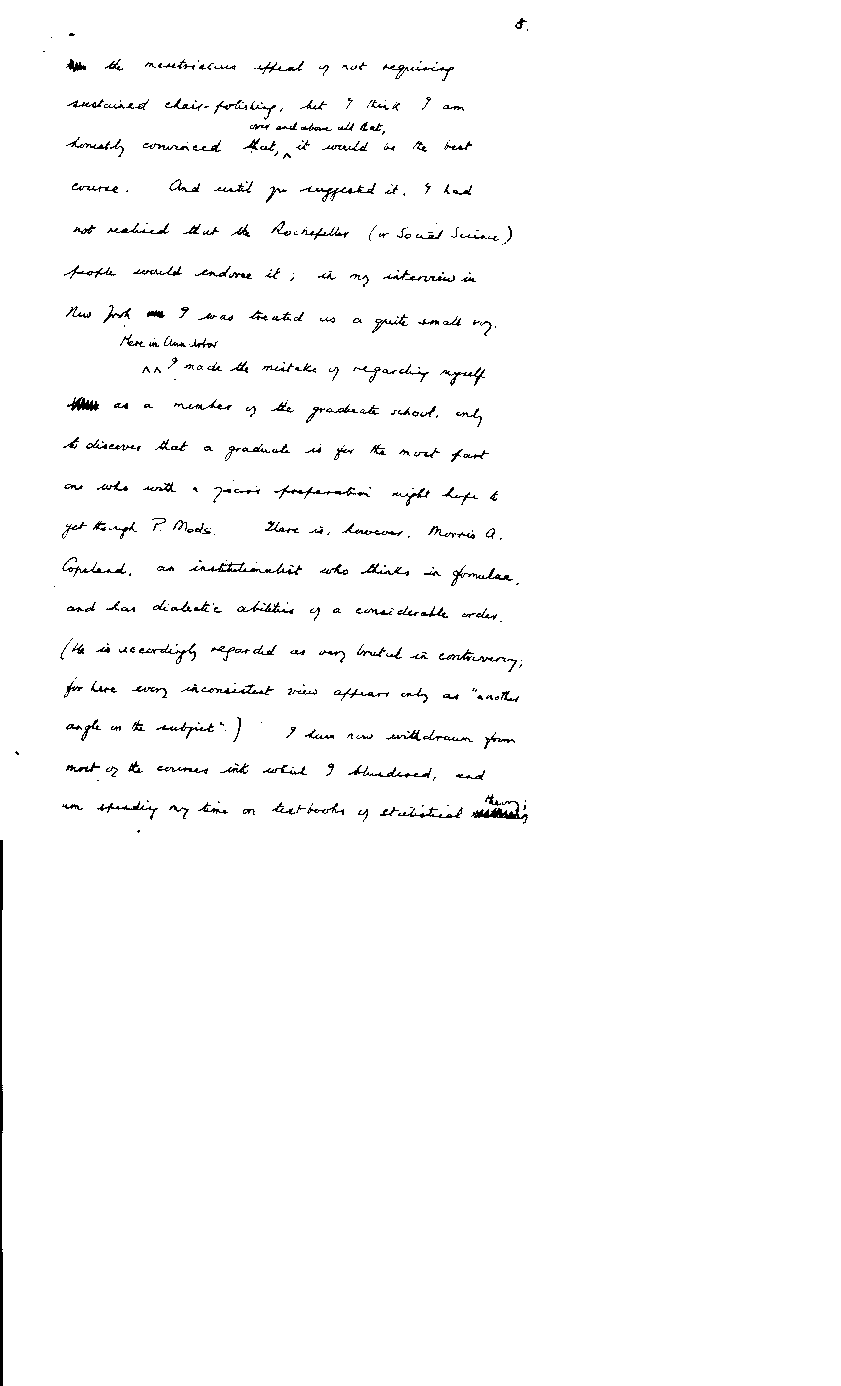 5.
the meretricious appeal of not requiring
sustained chair-polishing, but I think I am
over and above all that,
honestly convinced that, ^ it would be the best
course. And until you suggested it, I had
not realised that the Rockefeller (or Social Science)
people would endorse it; in my interview in
New York I was treated as a quite small boy.
Here in Ann Arbor
^^ I made the mistake of regarding myself
as a member of the graduate school, only
to discover that a graduate is for the most part
one who with a year's preparation might hope to
get through P. Mods. There is, however, Morris A.
Copeland, an institutionalist who thinks in formulae,
and has dialectic abilities of a considerable order.
(He is accordingly regarded as very brutal in controversy;
for here every inconsistent view appears only as "another
angle on the subject".) I have now withdrawn from
most of the courses into which I blundered, and
am spending my time on textbooks of statistical
theory;